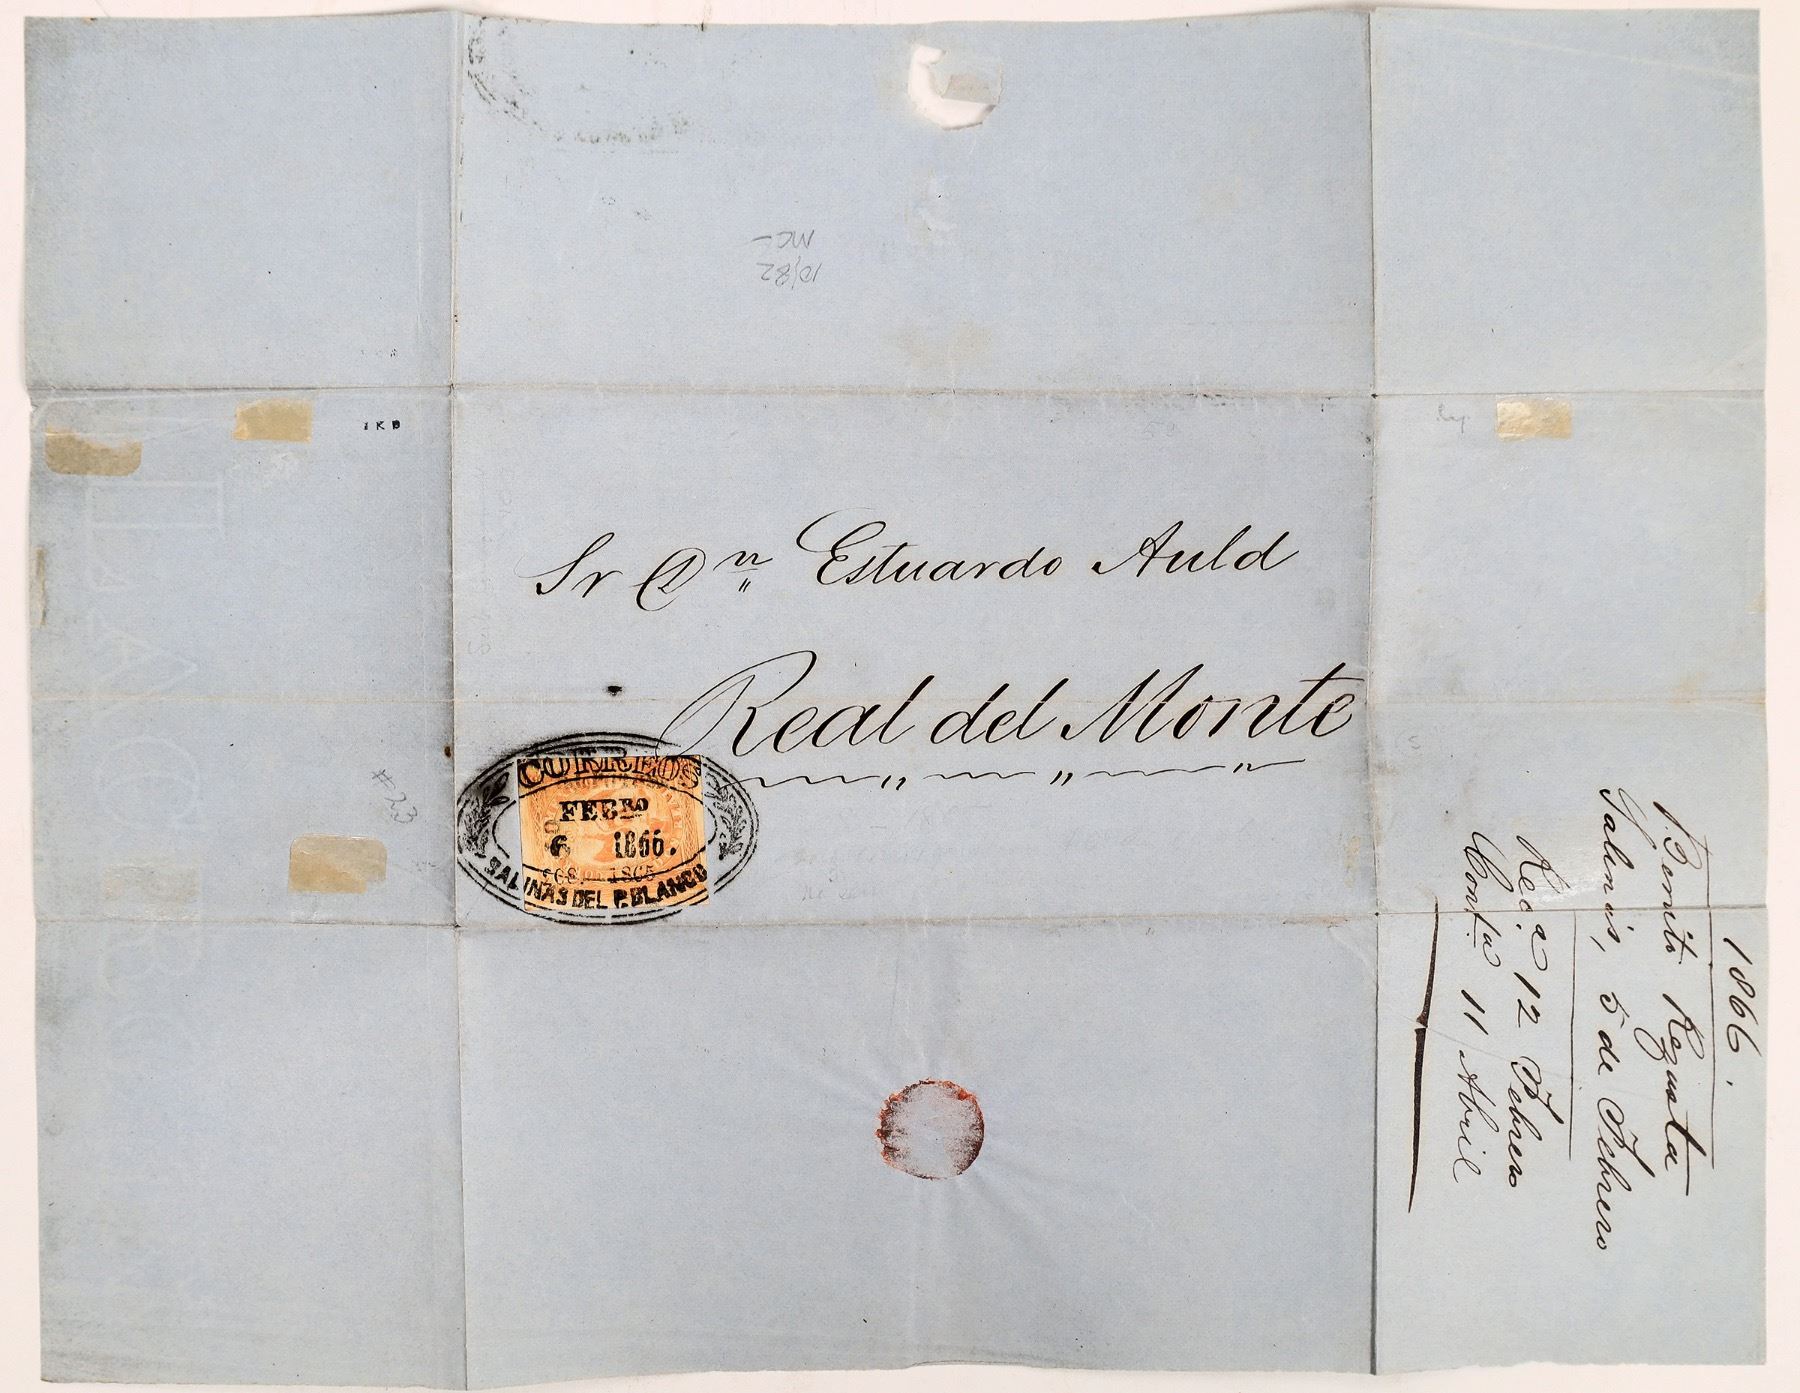 MC-
10/82
IKD
Sr Dn Estuardo Auld
Real del Monte
CORREOS
FEBRO
6 1866.
1865
SALINAS DEL P. BLANCO
#23
1866.
Benito
Salinas, 5 de Febrero
Rec.a 12 Febrero
Cont.a 11 Abril